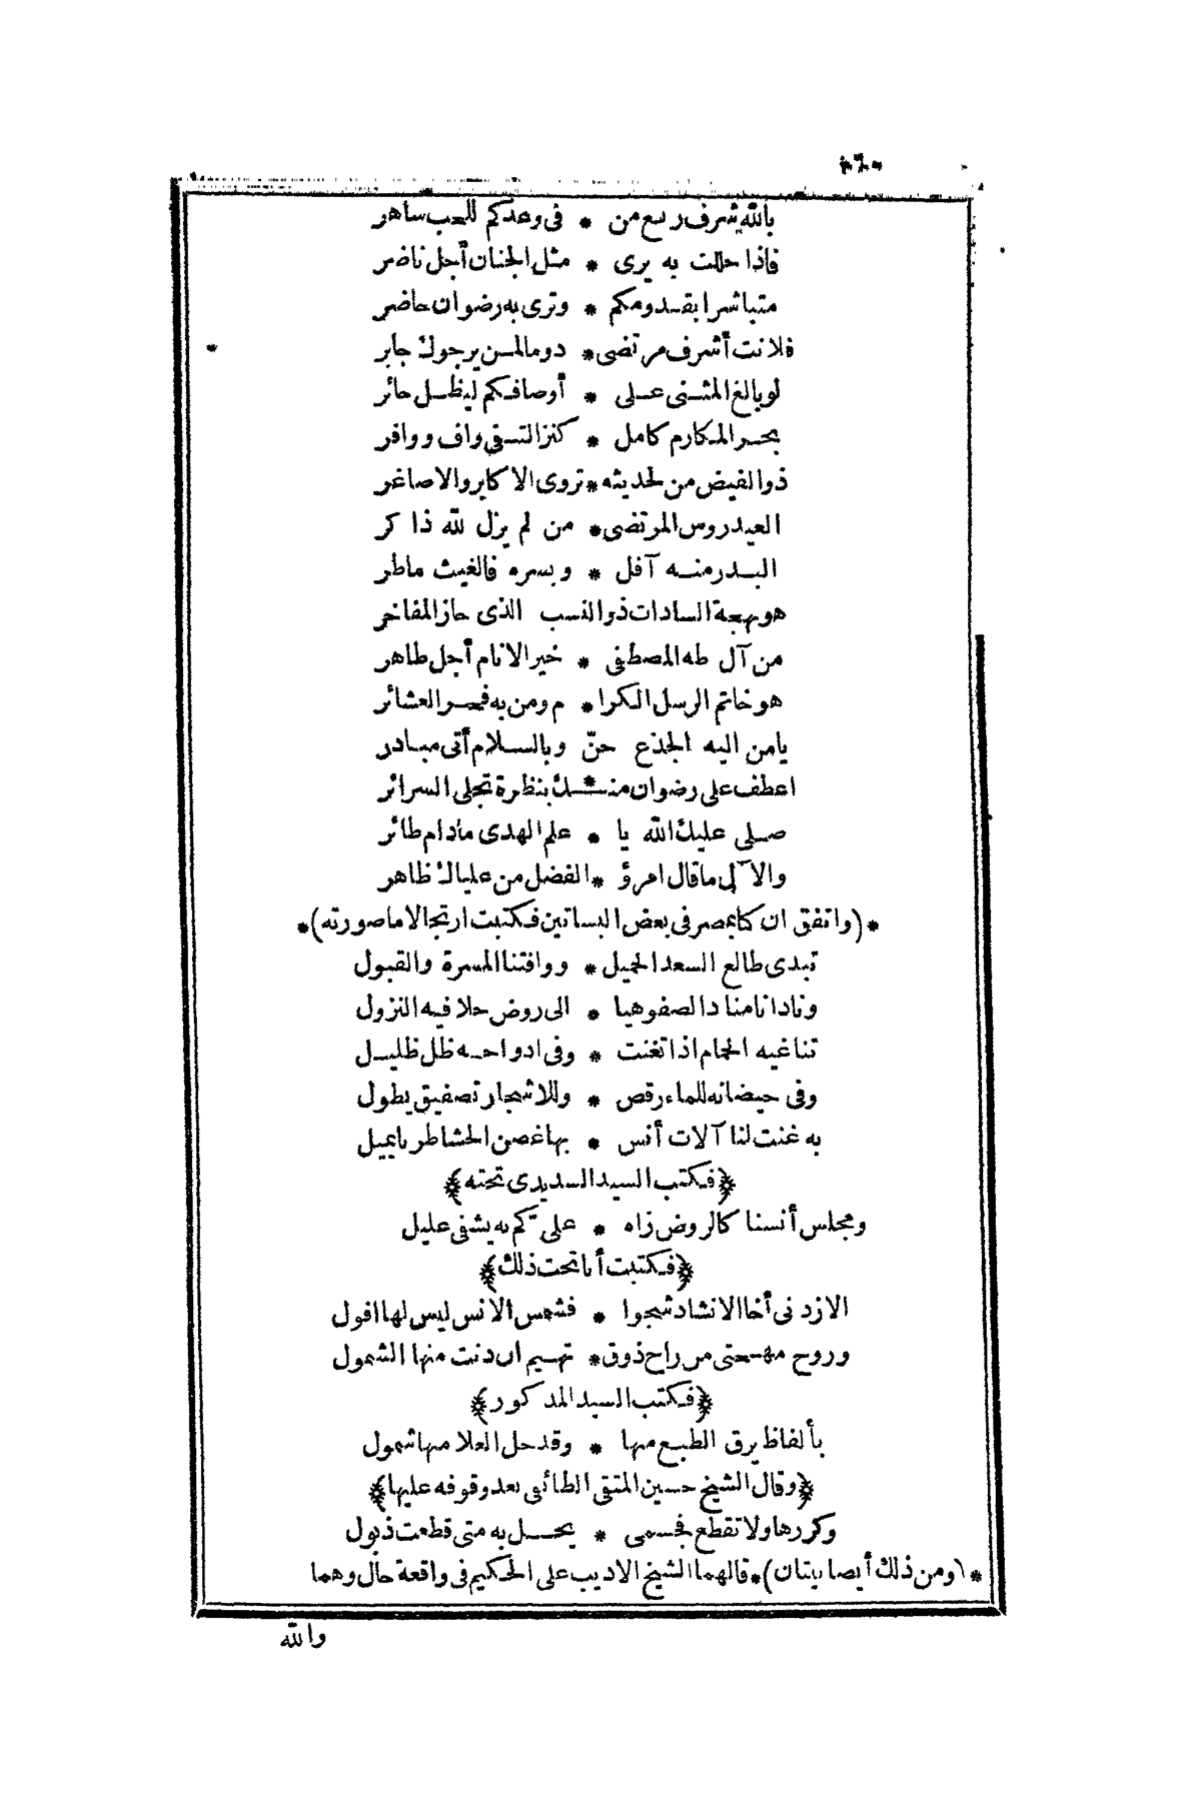 بالله شرف ربع من * فى وعدكم للعب ساهر
فاذا حللت به يرى * مثل الجنان أجل ناضر
متباشرا بقدومكم * وترى به رضوان حاضر
فلانت أشرف مرتضى * دوما لمن يرجوك جابر
لو بالغ المثنى على * أوصافكم ليظل حائر
بحر المكارم كامل * كنز التقى واف ووافر
ذو الفيض من لحديثه * تروى الاكابر والاصاغر
العيدروس المرتضى * من لم يزل لله ذاكر
البدر منه آفل * وبسره فالغيث ماطر
هو بهجة السادات ذو النسب الذى حاز المفاخر
من آل طه المصطفى * خير الانام أجل طاهر
هو خاتم الرسل الكرا * م ومن به فحر العشائر
يامن اليه الجذع حنّ وبالسلام أتى مبادر
اعطف على رضوان منـ * ـك بنظرة تجلى السرائر
صلى عليك الله يا * علم الهدى مادام طائر
والآل ما قال امرؤ * الفضل من علياك ظاهر
*(واتفق ان كنا بمصر فى بعض البساتين فكتبت ارتجالا ما صورته)*
تبدى طالع السعد الجميل * ووافتنا المسرة والقبول
ونادانا مناد الصفو هيا * الى روض حلا فيه النزول
تناغيه الحمام اذا تغنت * وفى ادواحه ظل ظليل
وفى حيضانه للماء رقص * وللاشجار تصفيق يطول
به غنت لنا آلات أنس * بها غصن الحشا طربا يميل
﴿فكتب السيد السديدى تحته﴾
ومجلس أنسنا كالروض زاه * علىّ كم به يشفى عليل
﴿فكتبت أنا تحت ذلك﴾
الا زدنى أخا الانشاد شجوا * فشمس الانس ليس لها افول
وروح مهجتى من راح ذوق * تهيم ان دنت منها الشمول
﴿فكتب السيد المذكور﴾
بألفاظ يرق الطبع منها * وقد حل العلا منها شمول
﴿وقال الشيخ حسين المتقى الطائفى بعد وقوفه عليها﴾
وكررها ولا تقطع فجسمى * يحل به متى قطعت ذبول
*(ومن ذلك أيضا بيتان)* قالهما الشيخ الاديب على الحكيم فى واقعة حال وهما
والله